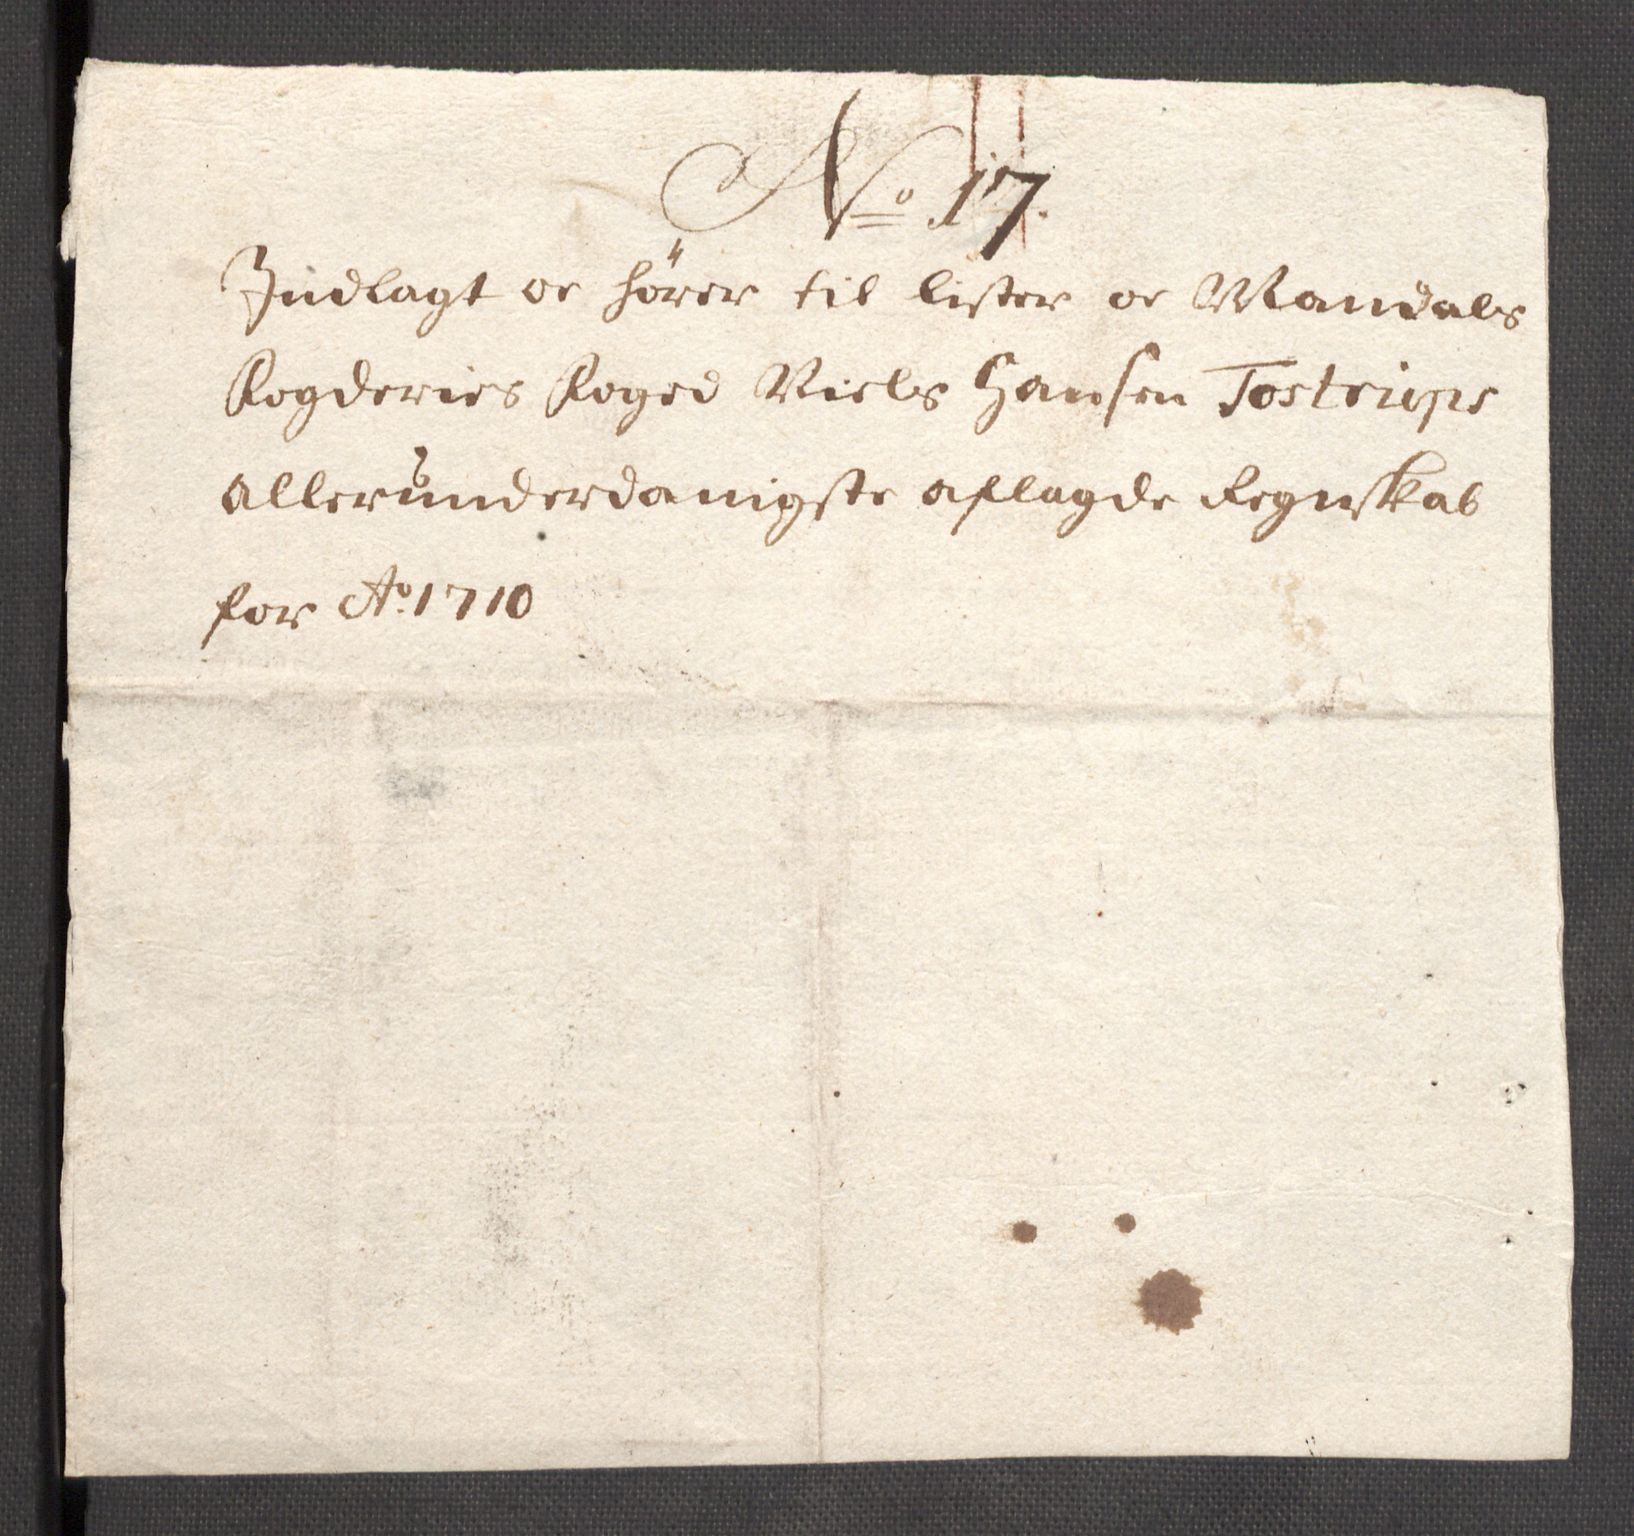 No. 17.
Indlagt oc hörer til Lister oc Mandals
Fogderies Foged Niels Hansen Tostrups
allerunderdanigste aflagde Regnskab
for Ao. 1710